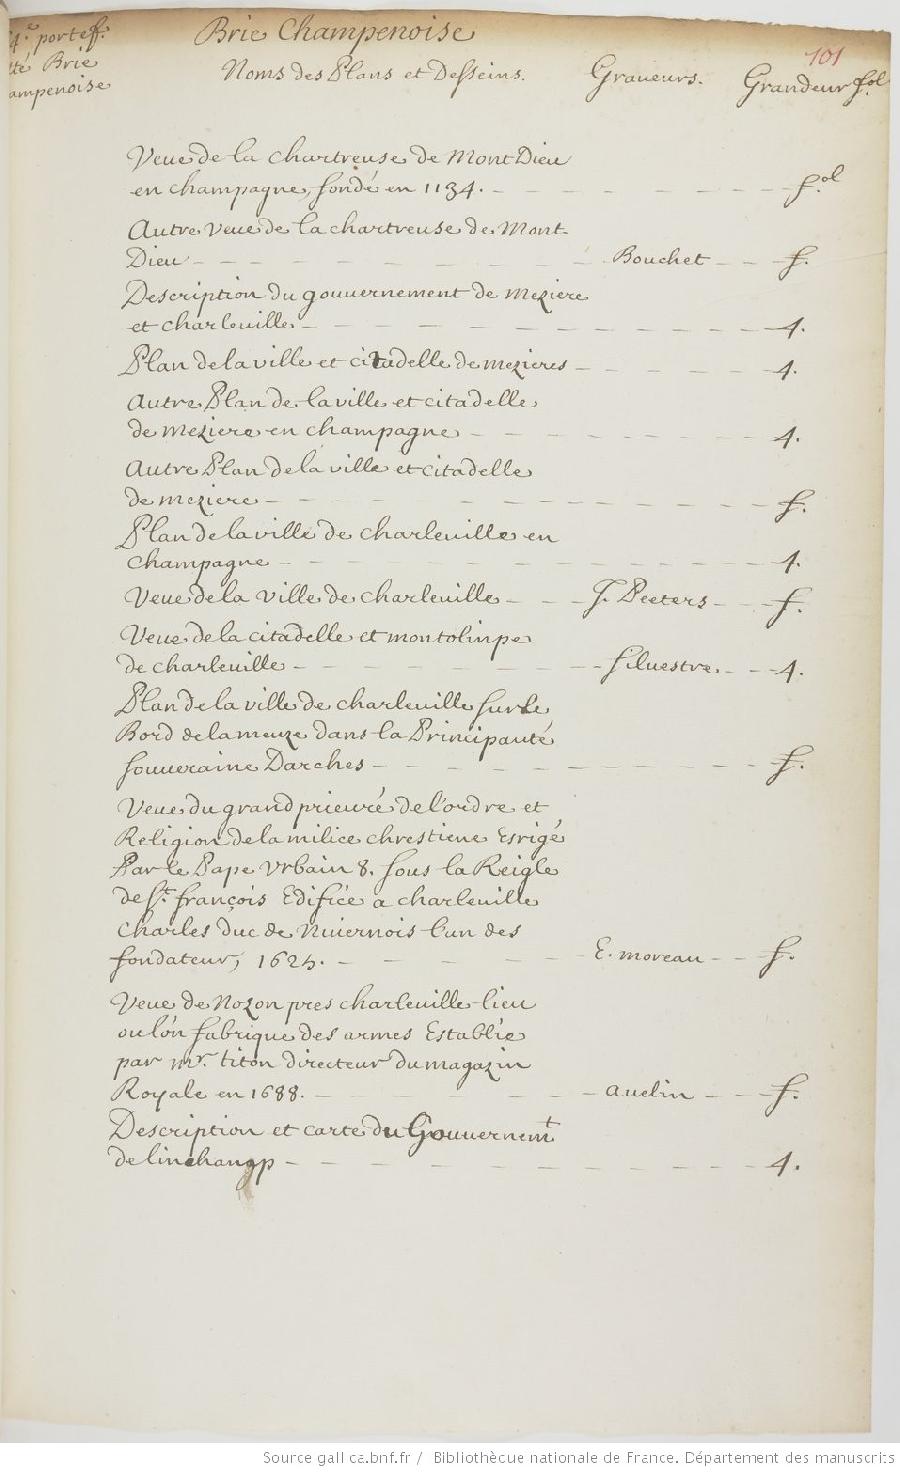 4.e portef.
té Brie
ampenoise
Brie Champenoise
101
Noms des Plans et Desseins. Graveurs. Grandeur fol.
Veue de la chartreuse de Mont Dieu
en champagne, fondé en 1134. fol
Autre Veue de la chartreuse de Mont-
Dieu Bouchet f.
Description du gouvernement de Meziere
et charleville. 4.
Plan de la ville et citadelle de mezieres 4.
Autre Plan de la ville et citadelle
de Meziere en champagne 4.
Autre Plan de la ville et citadelle
de meziere f.
Plan de la ville de charleville en
champagne 4.
Veue de la ville de charleville J. Peeters f.
Veue de la citadelle et montolimpe
de charleville silvestre. 4.
Plan de la ville de charleville sur le
Bord de la meuze dans la Principauté
souveraine Darches f.
Veue du grand prieuré de l'ordre et
Religion de la milice chrestiene Esrigé
Par le Pape Urbain 8. sous la Reigle
de st. françois Edifiée a charleville
Charles Duc de Nivernois l'un des
fondateur, 1625. E. moreau f.
Veue de Nozon pres charleville lieu
ou lon fabrique des armes Establie
par mr. titon directeur du magazin
Royale en 1688. avelin f.
Description et carte du Gouvernemt
de linchamp 4.
Source gallica.bnf.fr / Bibliothèque nationale de France. Département des manuscrits